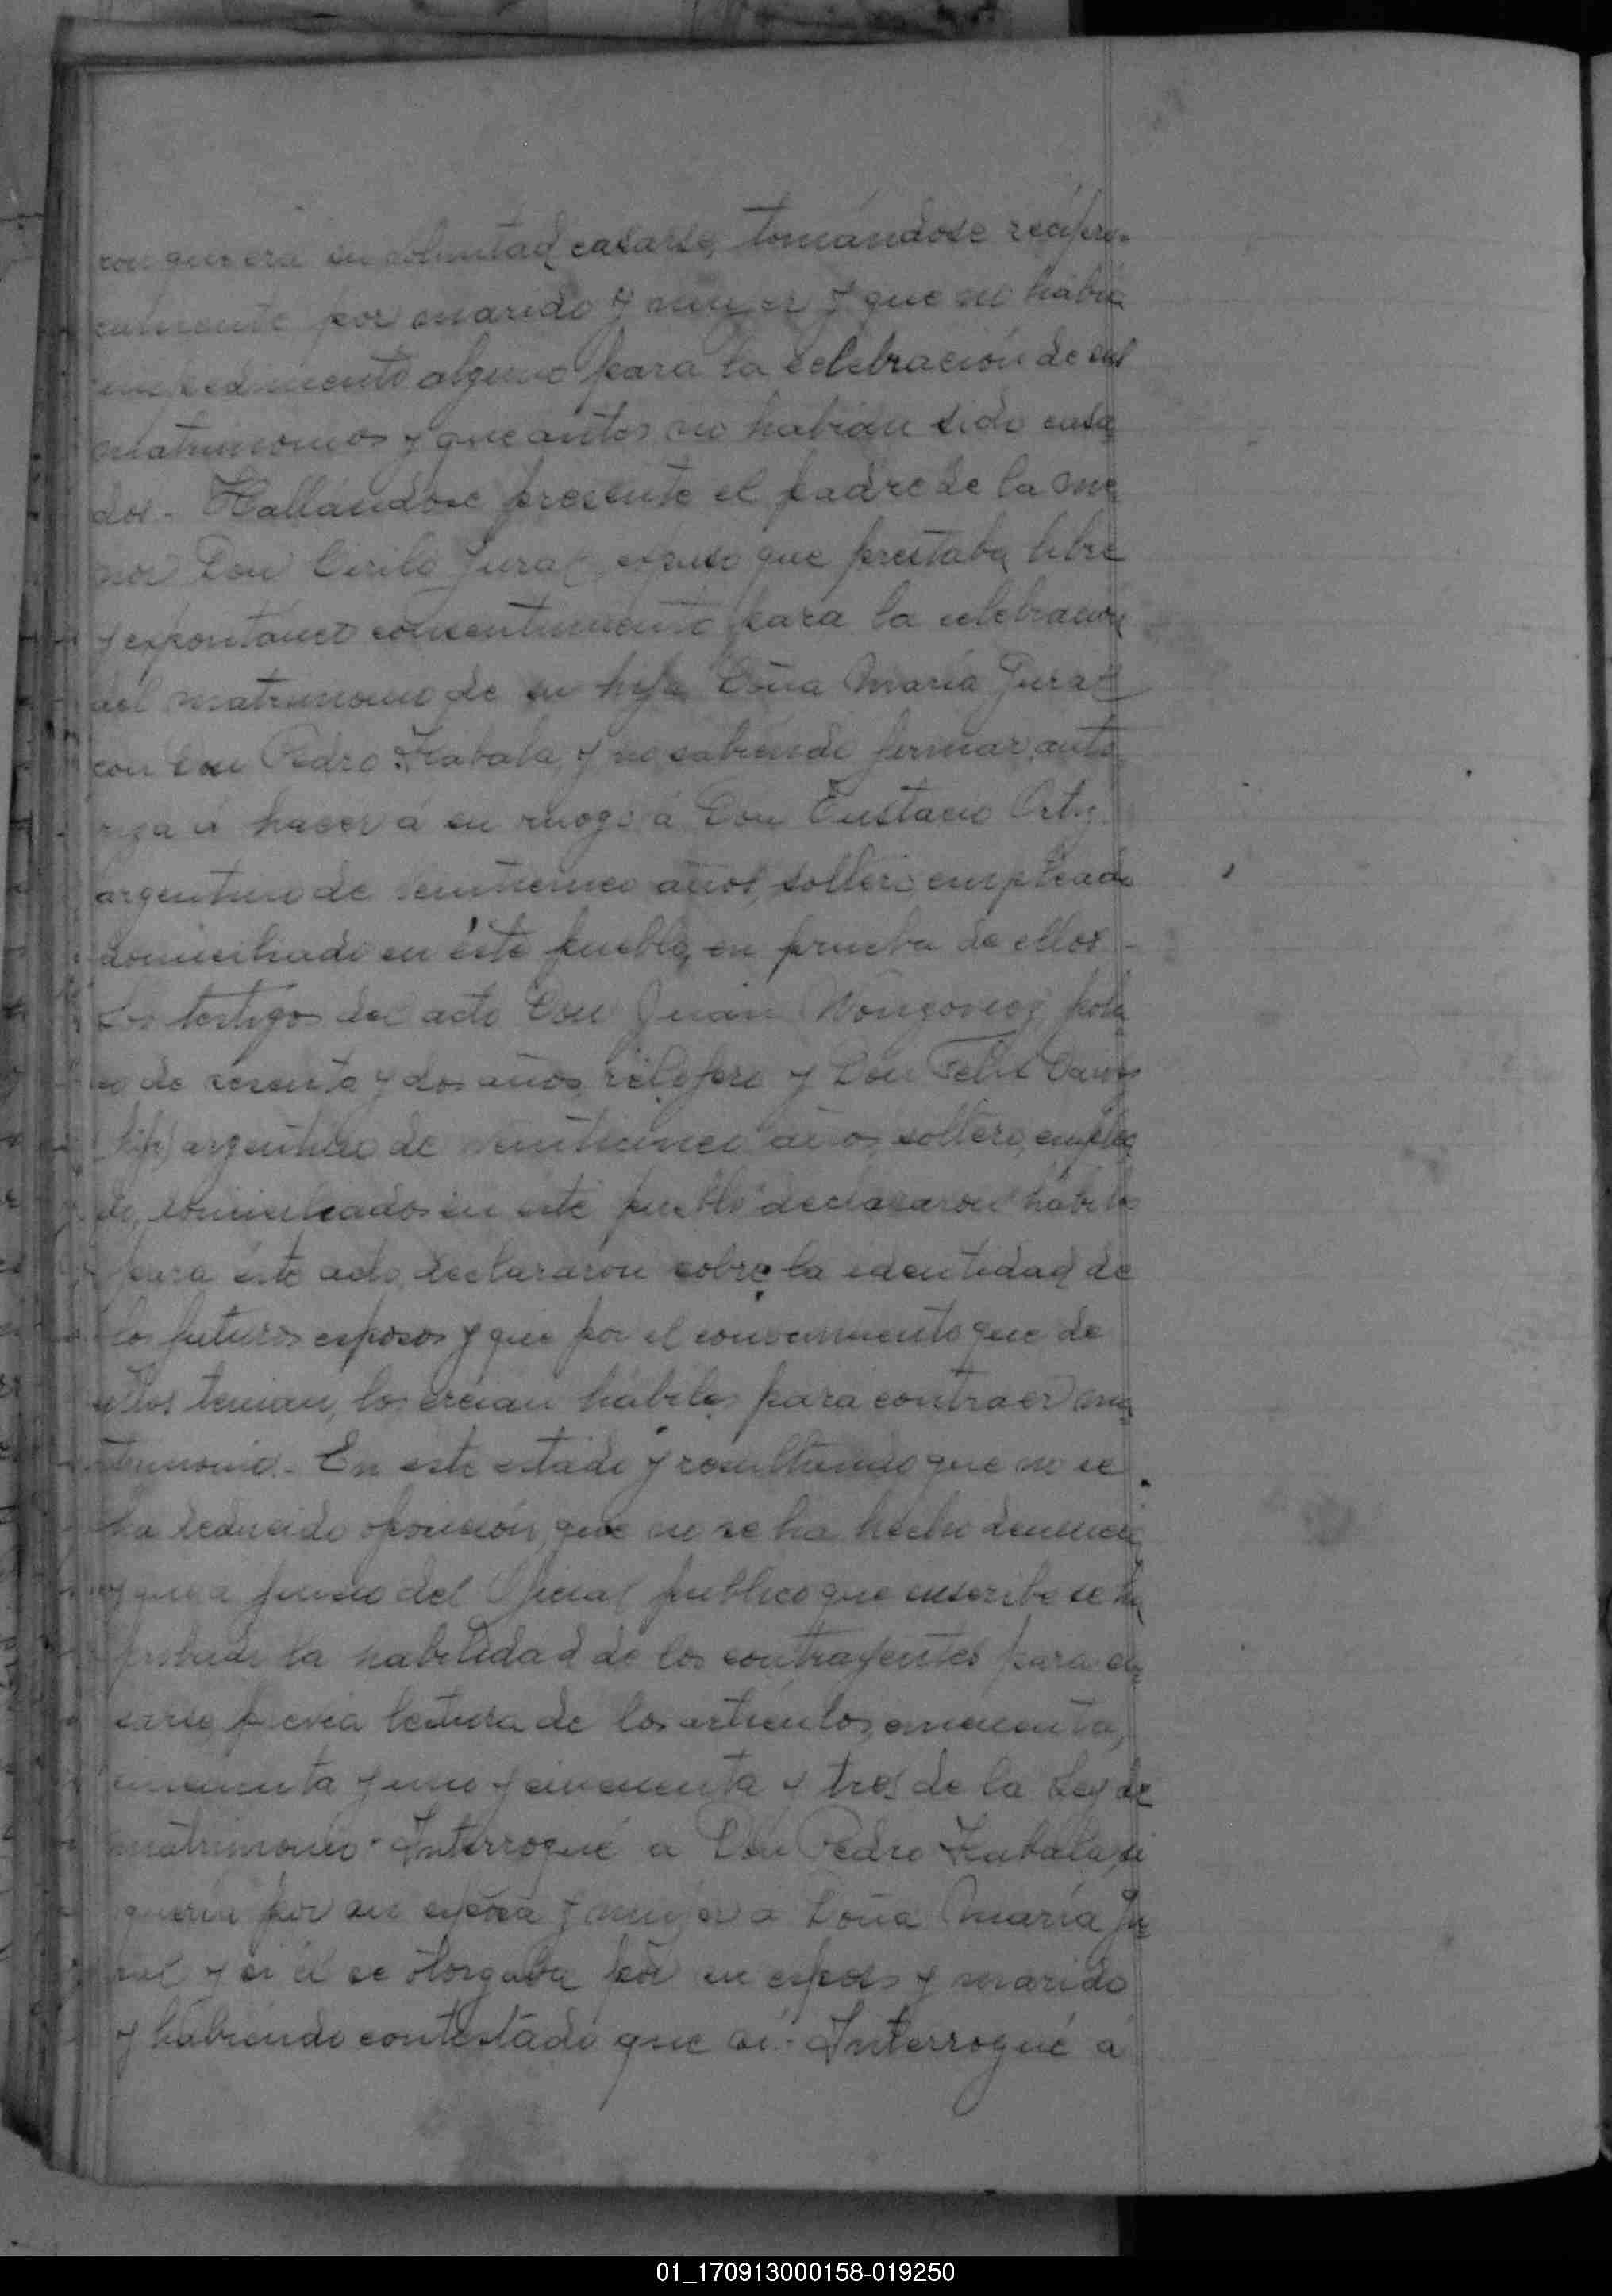 ron que era su voluntad casarse, tomándose recípro-
camente por marido y mujer y que no había
impedimento alguno para la celebración de sus
matrimonios y que antes no habían sido casa
dos - Hallándose presente el padre de la me
nor Don Cirilo Jural, expuso que prestaba libre
y espontáneo consentimiento para la celebración
del matrimonio de su hija Doña María Jural
con Don Pedro Kabala, y no sabiendo firmar, auto
riza a hacer á su ruego á Don Eustacio Ortiz
argentino de años, soltero empleado
domiciliado en éste pueblo, en prueba de ellos -
Los testigos del acto Don Juan pola
co de sesenta y dos años, y Don Felix
(hijo) argentino de años, soltero, emplea
do, domiciliados en este pueblo declararon hábiles
para éste acto, declararon sobre la identidad de
los futuros esposos y que por el conocimiento que de
ellos tenian, los creian hábiles para contraer ma
trimonio. - En este estado y resultando que no se
ha deducido oposición, que no se ha hecho denuncia
y que a juicio del Oficial público que suscribe se ha
probado la habilidad de los contrayentes para ca
sarse, previa lectura de los articulos, cincuenta,
cincuenta y uno y cincuenta y tres de la Ley de
matrimonio - Interrogué a Don Pedro Kabala, si
queria por su esposa y mujer a Doña María Ju
ral y si él se otorgaba por su esposo y marido
y habiendo contestado que sí. - Interrogué á
01_170913000158-019250